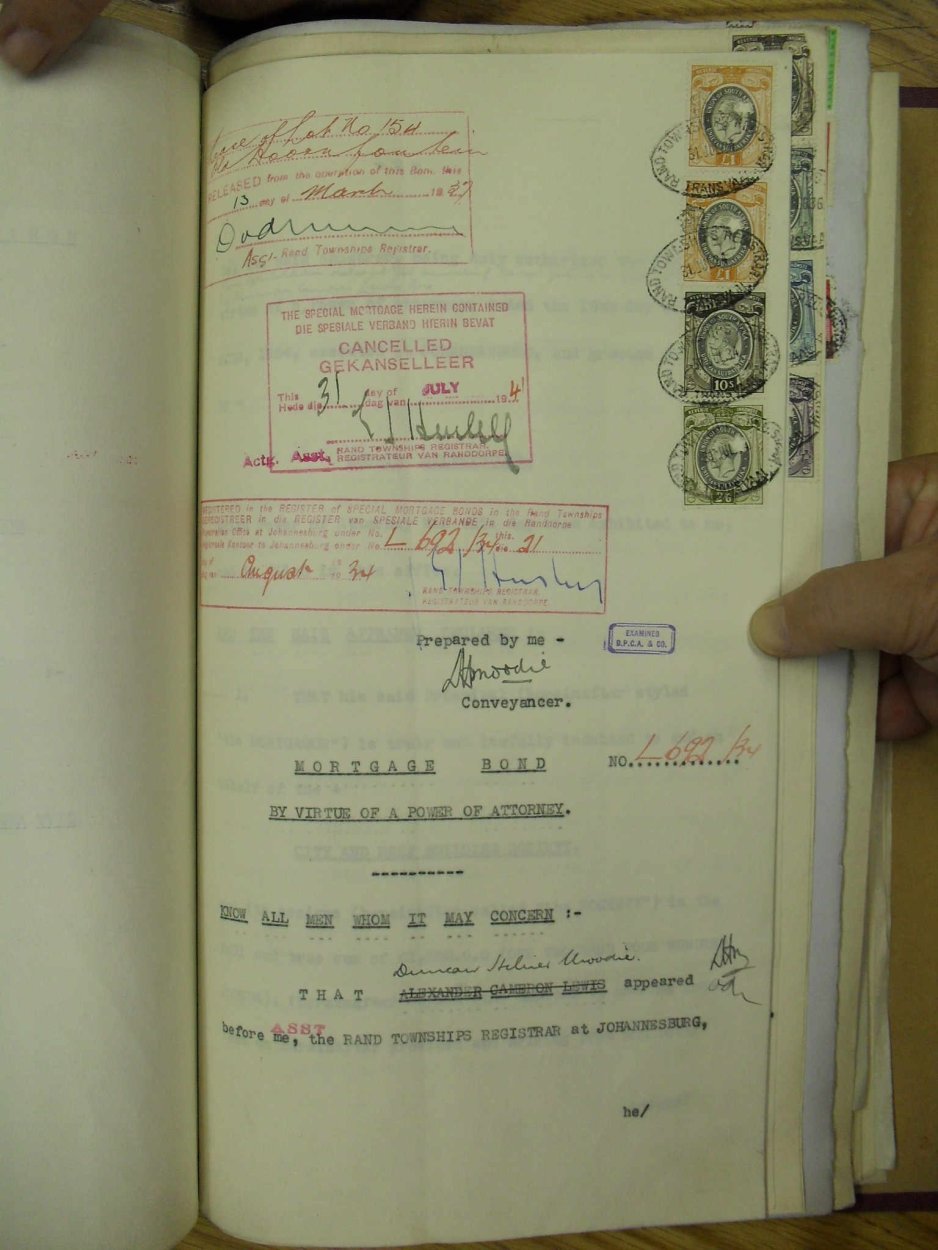 of Lot No 154
RELEASED from the operation of this Bond this
13 day of March 1937
Asst. Rand Townships Registrar.
THE SPECIAL MORTGAGE HEREIN CONTAINED
DIE SPESIALE VERBAND HIERIN BEVAT
CANCELLED
GEKANSELLEER
This 31 day of JULY
Hede die dag van 194
Actg. Asst. RAND TOWNSHIPS REGISTRAR.
REGISTRATEUR VAN RANDDORPE
REGISTERED in the REGISTER of SPECIAL MORTGAGE BONDS in the Rand Townships
GEREGISTREER in die REGISTER van SPESIALE VERBANDE in die Randdorpe
Registration Office at Johannesburg under No. L 692/34 this
Registrasie Kantoor te Johannesburg onder No. die 21
August 1934
RAND TOWNSHIPS REGISTRAR.
REGISTRATEUR VAN RANDDORPE
Prepared by me -
DHMoodie
Conveyancer.
EXAMINED
D.P.C.A. & CO.
MORTGAGE BOND NO. L 692/34
BY VIRTUE OF A POWER OF ATTORNEY.
KNOW ALL MEN WHOM IT MAY CONCERN :-
Duncan Moodie.
THAT ALEXANDER CAMERON LEWIS appeared
ASST
before me, the RAND TOWNSHIPS REGISTRAR at JOHANNESBURG,
he/
REVENUE
UNION OF SOUTH AFRICA
£1
RAND TOWNSHIPS REGISTRAR
TRANSVAAL
£1
10s
2/6